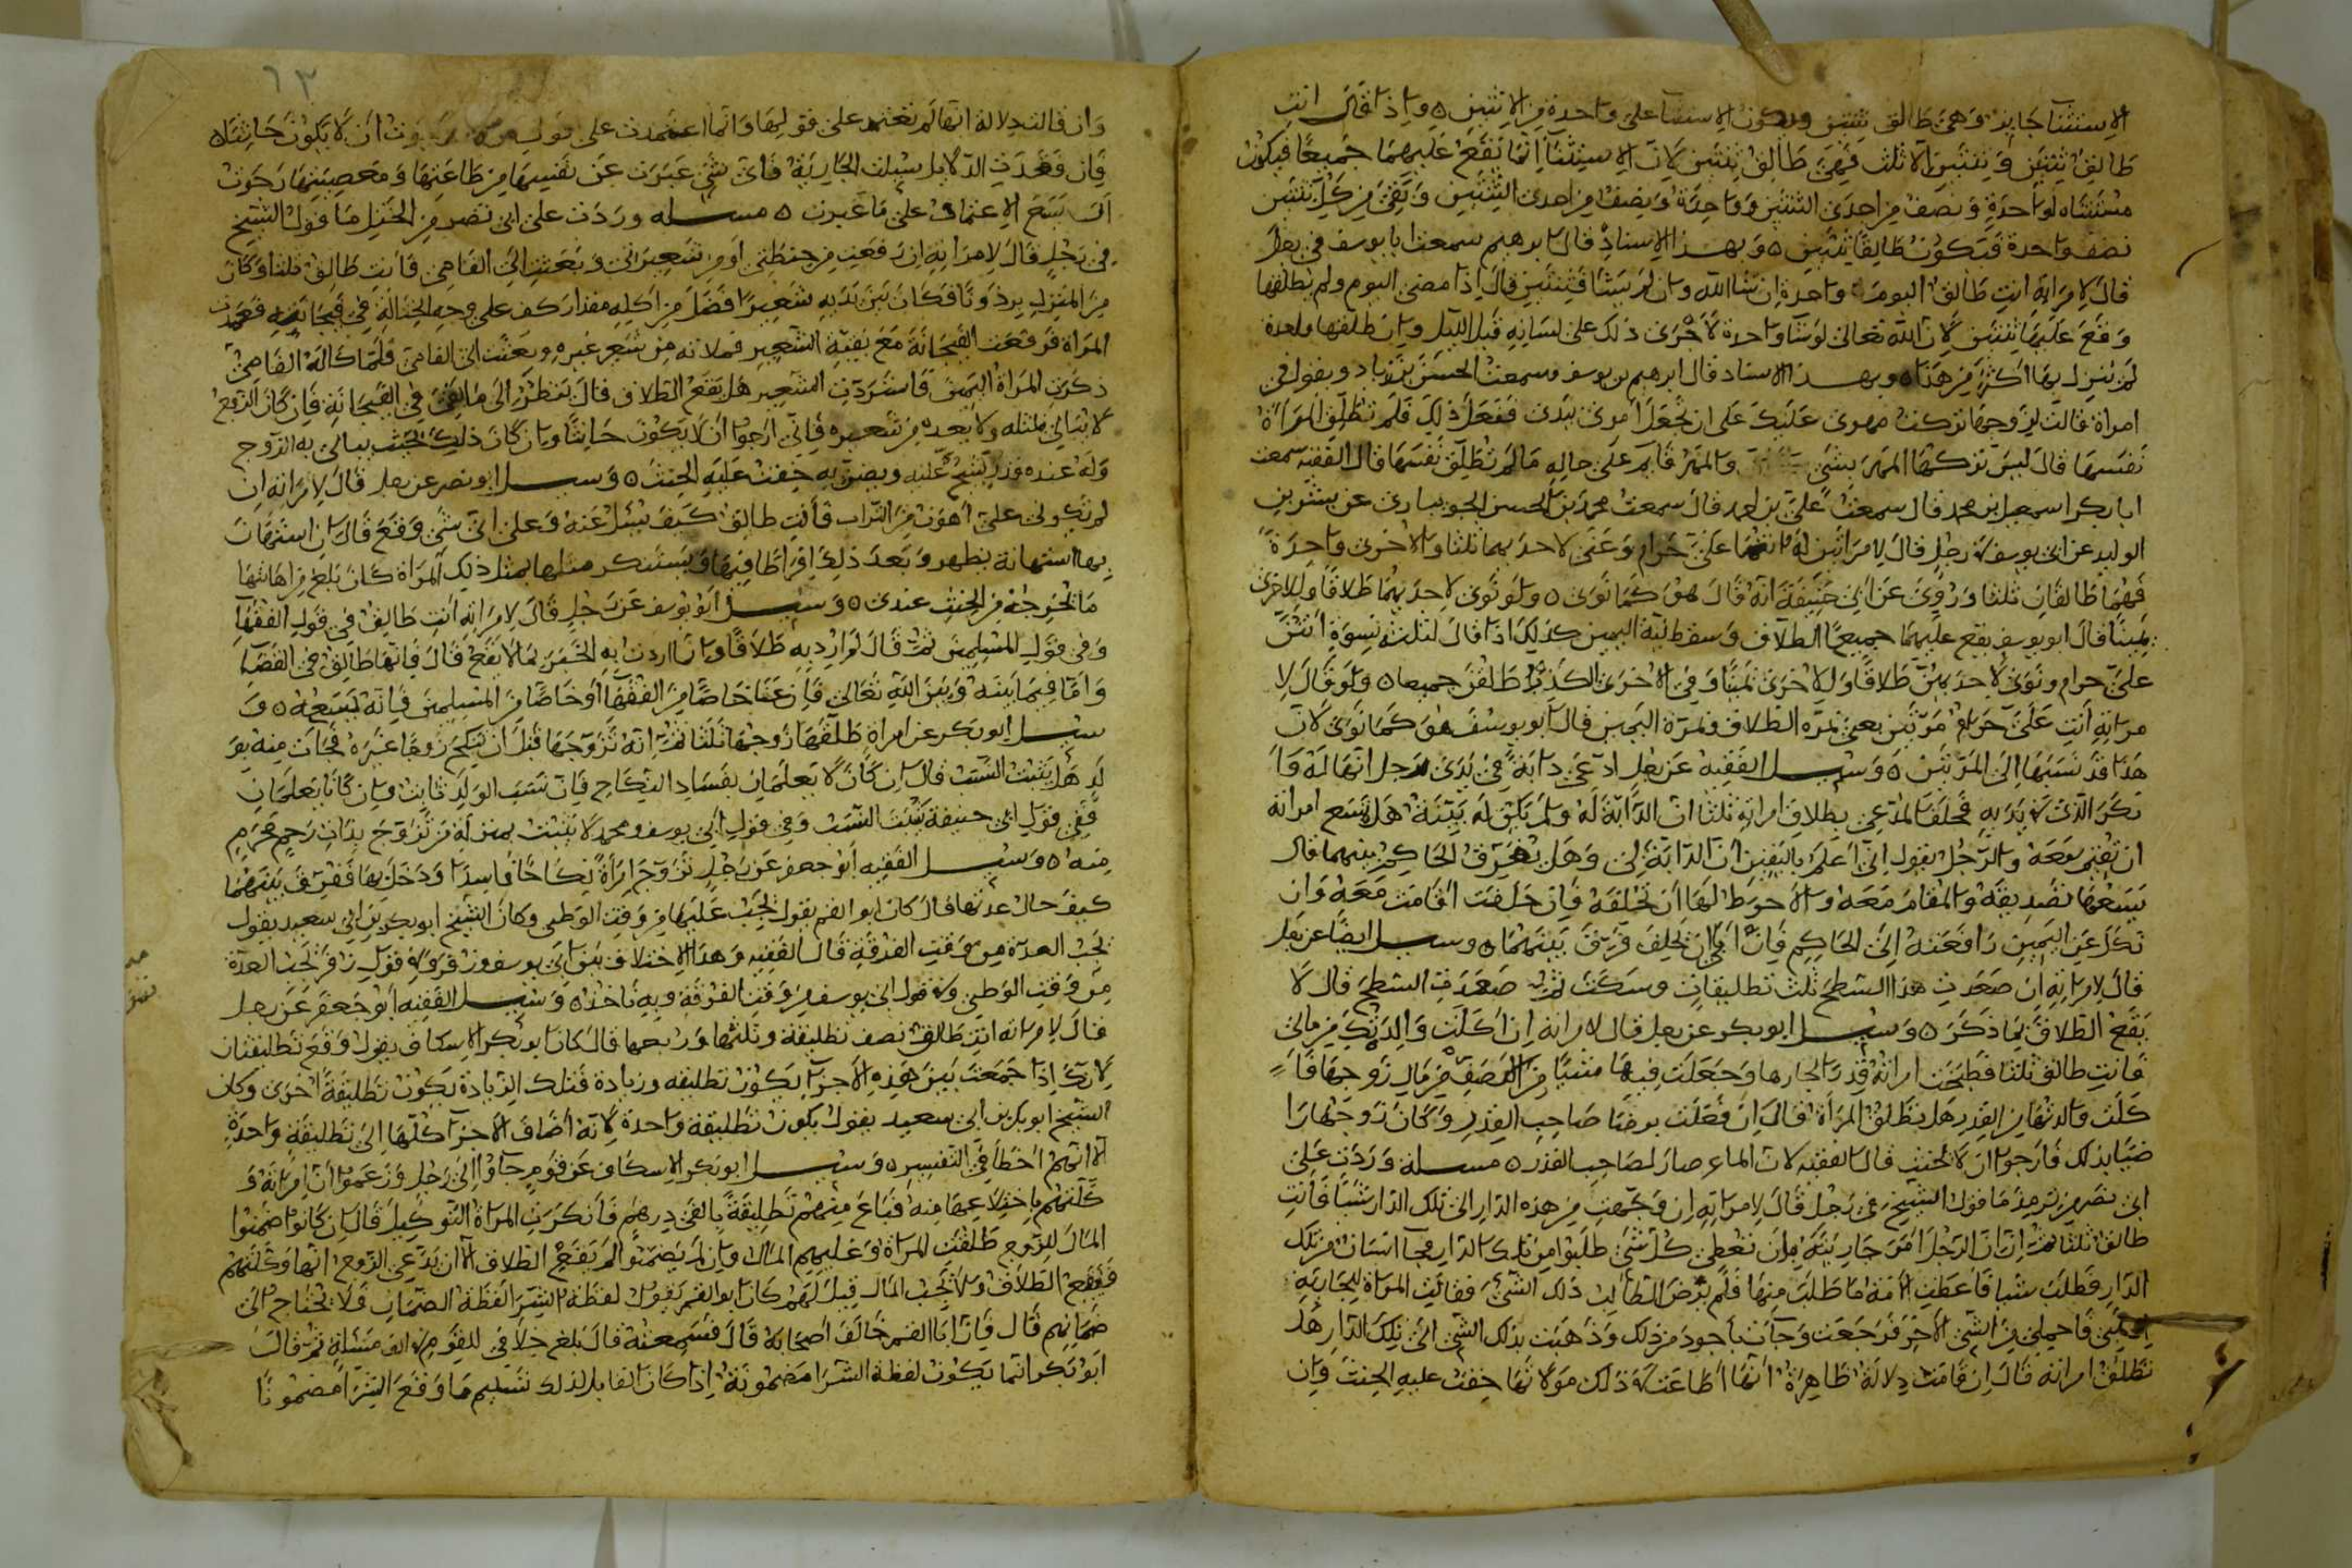 الاستثنا جايز وهي طالق ثنتين ويكون الاستثنا على واحدة من الاثنتين ٥ واذا قال انت
طالق ثنتين وثنتين الا ثلث فهي طالق ثنتين لان الاستثنا انما يقع عليهما جميعا فيكون
مستثناه لواحدة ونصف من احدى الثنتين وواحدة ونصف من احدى الثنتين وبقي من كل ثنتين
نصف واحدة فتكون طالقا ثنتين ٥ وبهذا الاسناد قال ابرهيم سمعت ابا يوسف في رجل
قال لامراته انت طالق اليوم واحدة ان شا الله وان لم يشا فثنتين قال اذا مضى اليوم ولم يطلقها
وقع عليها ثنتين لان الله تعالى لو شا واحدة لاجرى ذلك على لسانه قبل الليل وان طلقها واحدة
لم ينزل بها اكثر من هذا ٥ وبهذا الاسناد قال ابرهيم بن يوسف وسمعت الحسن بن زياد ويقول في
امراة قالت لزوجها تركت مهري عليك على ان تجعل امري بيدي ففعل ذلك فلم تطلق المراة
نفسها قال ليس تركها المهر بشي والمهر قايم على حاله ما لم تطلق نفسها قال الفقيه سمعت
ابا بكر اسمعيل بن محمد قال سمعت علي بن احمد قال سمعت محمد بن الحسن الجويباري عن بشر بن
الوليد عن ابي يوسف في رجل قال لامراتين له انتما علي حرام وعنى لاحديهما ثلثا والاخرى واحدة
فهما طالقان ثلثا وروي عن ابي حنيفة انه قال هو كما نوى ٥ ولو نوى لاحديهما طلاقا وللاخرى
يمينا قال ابو يوسف يقع عليهما جميعا الطلاق وسقط نية اليمين كذلك اذا قال لثلث نسوة انتن
علي حرام ونوى لاحديهن طلاقا ولاخرى يمينا وفي الاخرى الكذب طلقن جميعا ٥ ولو قال لا
مراته انت علي حرام مرتين يعني بمرة الطلاق وبمرة اليمين قال ابو يوسف هو كما نوى لان
هذا قد نسبها الى المرتين ٥ وسئل الفقيه عن رجل ادعى دابة في يدي رجل انها له وا
نكر الذي في يديه فحلف المدعي بطلاق امراته ثلثا ان الدابة له ولم يكن له بينة هل يسع امراته
ان تقيم معه والرجل يقول اني اعلم باليقين ان الدابة لي وهل يفرق الحاكم بينهما قال
يسعها تصديقه والمقام معه والاحوط لها ان تحلفه فان حلفت اقامت معه وان
نكل عن اليمين رافعته الى الحاكم فان ابى ان يحلف فرق بينهما ٥ وسئل ايضا عن رجل
قال لامراته ان صعدت هذا السطح ثلث تطليقات وسكت ثم صعدت السطح قال لا
يقع الطلاق بما ذكر ٥ وسئل ابو بكر عن رجل قال لامراته ان اكلت والدتك من مالي
فانت طالق ثلثا فطبخت امراته قدرا لجارها وجعلت فيها شيا من من مال زوجها فا
كلت والدتها من القدر هل تطلق المراة قال ان فعلت برضا صاحب القدر وكان زوجها را
ضيا بذلك فارجوا ان لا يحنث قال الفقيه لان الماء صار لصاحب القدر ٥ مسلة وردت على
ابي نصر من ترمذ ما قول الشيخ في رجل قال لامراته ان وجهت من هذه الدار الى تلك الدار شيا فانت
طالق ثلثا ثم ان الرجل امر جاريته بان تعطي كل شي طلبوا من تلك الدار فجا انسان من تلك
الدار فطلب شيا فاعطت الامة ما طلب منها فلم يرض الطالب ذلك الشي فقالت المراة للجارية
فاحملي من الشي الاخر فرجعت وجات باجود من ذلك وذهبت بذلك الشي الى تلك الدار هل
تطلق امراته قال ان قامت دلالة ظاهرة انها اطاعت في ذلك مولاتها خفت عليه الحنث وان
٦٣
وان قالت دلالة انها لم تعتمد على قولها وانما اعتمدت على قول رجوت ان لا يكون حانثا ٥
فان فقدت الدلايل سيلت الجارية فاي شي عبرت عن نفسها من طاعتها ومعصيتها رجوت
ان يسع الاعتماد على ما عبرت ٥ مسلة وردت على ابي نصر من الختل ما قول الشيخ
في رجل قال لامراته ان رفعت من حنطتي او من شعيراتي وبعثت الى القاصي فانت طالق ثلثا وكان
من المنزل برذونا فكان بين يديه شعيرا فضل من اكله مقدار كف على وجه في فعمدت
المراة فرفعت مع بقية الشعير فملاته من شعير غيره وبعثت الى القاصي فلما كاله القاصي
ذكرت المراة اليمين فاستردت الشعير هل يقع الطلاق قال ينظر الى ما بقي في فان كان الزوج
لا يبالي بمثله ولا يعده من شعيره فاني ارجوا ان لا يكون حانثا وان كان ذلك يبالي به الزوج
وله عنده قدر يشح عليه ويضن به خفت عليه الحنث ٥ وسئل ابو نصر عن رجل قال لامراته ان
لم تكوني علي اهون من التراب فانت طالق كيف يسئل عنه وعلى اي شي وقع قال ان استهان
بها استهانة يظهر ويعد ذلك افراطا فيها ويستنكر مثلها بمثل ذلك المراة كان بلغ من اهانتها
ما يخرجه من الحنث عندي ٥ وسئل ابو يوسف عن رجل قال لامراته انت طالق في قول الفقها
وفي قول المسلمين ثم قال لم ارد به طلاقا وانا اردت به الخبر بما لا يقع قال فانها طالق في القضا
واما فيما بينه وبين الله تعالى فان عنا خاصا من الفقها او خاصا من المسلمين فانه يسعه ٥ و
سئل ابو بكر عن امراة طلقها زوجها ثلثا ثم انه تزوجها قبل ان تنكح زوجا غيره فجات منه بو
لد هل يثبت النسب قال ان كان لا يعلمان بفساد النكاح فان نسب الولد ثابت وان كانا يعلمان
ففي قول ابي حنيفة يثبت النسب وفي قول ابي يوسف ومحمد لا يثبت بمنزلة من تزوج بذات رحم محرم
منه ٥ وسئل الفقيه ابو جعفر عن رجل تزوج امراة نكاحا فاسدا ودخل بها ففرق بينهما
كيف حال عدتها قال كان ابو القسم يقول يجب عليها من وقت الوطى وكان الشيخ ابو بكر بن ابي سعيد يقول
يجب العدة من وقت الفرقة قال الفقيه وهذا الاختلاف بين ابي يوسف وزفر في قول زفر يجب العدة
من وقت الوطي وفي قول ابي يوسف من وقت الفرقة وبه ناخذ ٥ وسئل الفقيه ابو جعفر عن رجل
قال لامراته انت طالق نصف تطليقة وثلثها وربعها قال كان ابو بكر الاسكاف يقول وقع تطليقتان
لانك اذا جمعت بين هذه الاجزا يكون تطليقه وزيادة فتلك الزيادة تكون تطليقة اخرى وكان
الشيخ ابو بكر بن ابي سعيد يقول يكون تطليقة واحدة لانه اضاف الاجزا كلها الى تطليقة واحدة
الا انهم اخطا في التفسير ٥ وسئل ابو بكر الاسكاف عن قوم جاوا الى رجل وزعموا ان امراته و
كلتهم باختلاعها منه فباع منهم تطليقة بالفي درهم فانكرت المراة التوكيل قال ان كانوا ضمنوا
المال للزوج طلقت المراة وعليهم المال وان لم يضمنوا لم يقع الطلاق الا ان يدعي الزوج انها وكلتهم
فيقع الطلاق ولا يجب المال قيل لهم كان ابو القسم يقول لفظة الشرا لفظة الضمان فلا تحتاج الى
ضمانهم قال فان ابا القسم خالف اصحابه قال فسمعته قال بلغ خلافي للقوم في الف مسالة ثم قال
ابو بكر انما يكون لفظة الشرا مضمونة اذا كان القابل لذلك تسليم ما وقع الشرا مضمونا